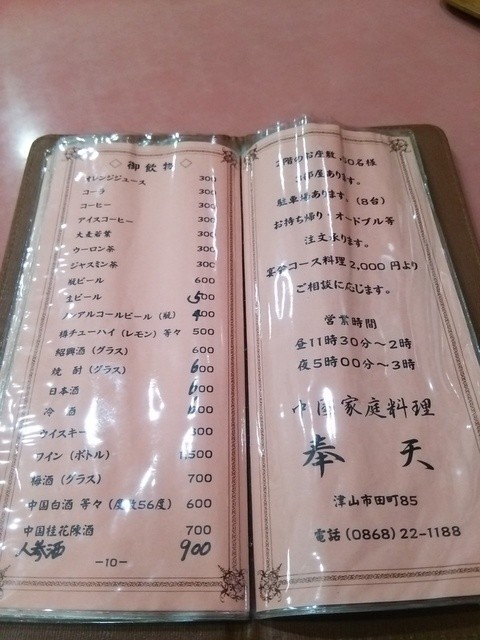 御飲物
オレンジジュース 300
コーラ 300
コーヒー 300
アイスコーヒー 300
大麦若葉 300
ウーロン茶 300
ジャスミン茶 300
瓶ビール 600
生ビール 500
ノンアルコールビール（瓶） 400
樽チューハイ（レモン）等々 500
紹興酒（グラス） 600
焼酎（グラス） 600
日本酒 600
冷酒 600
ウイスキー 800
ワイン（ボトル） 1,500
梅酒（グラス） 700
中国白酒 等々（度数56度） 600
中国桂花陳酒 700
人参酒 900
−10−
2階のお座敷 50名様
3部屋あります。
駐車場あります。（8台）
お持ち帰り・オードブル等
注文承ります。
宴会コース料理2,000円より
ご相談に応じます。
営業時間
昼11時30分〜2時
夜5時00分〜3時
中国家庭料理
奉天
津山市田町85
電話 (0868) 22-1188